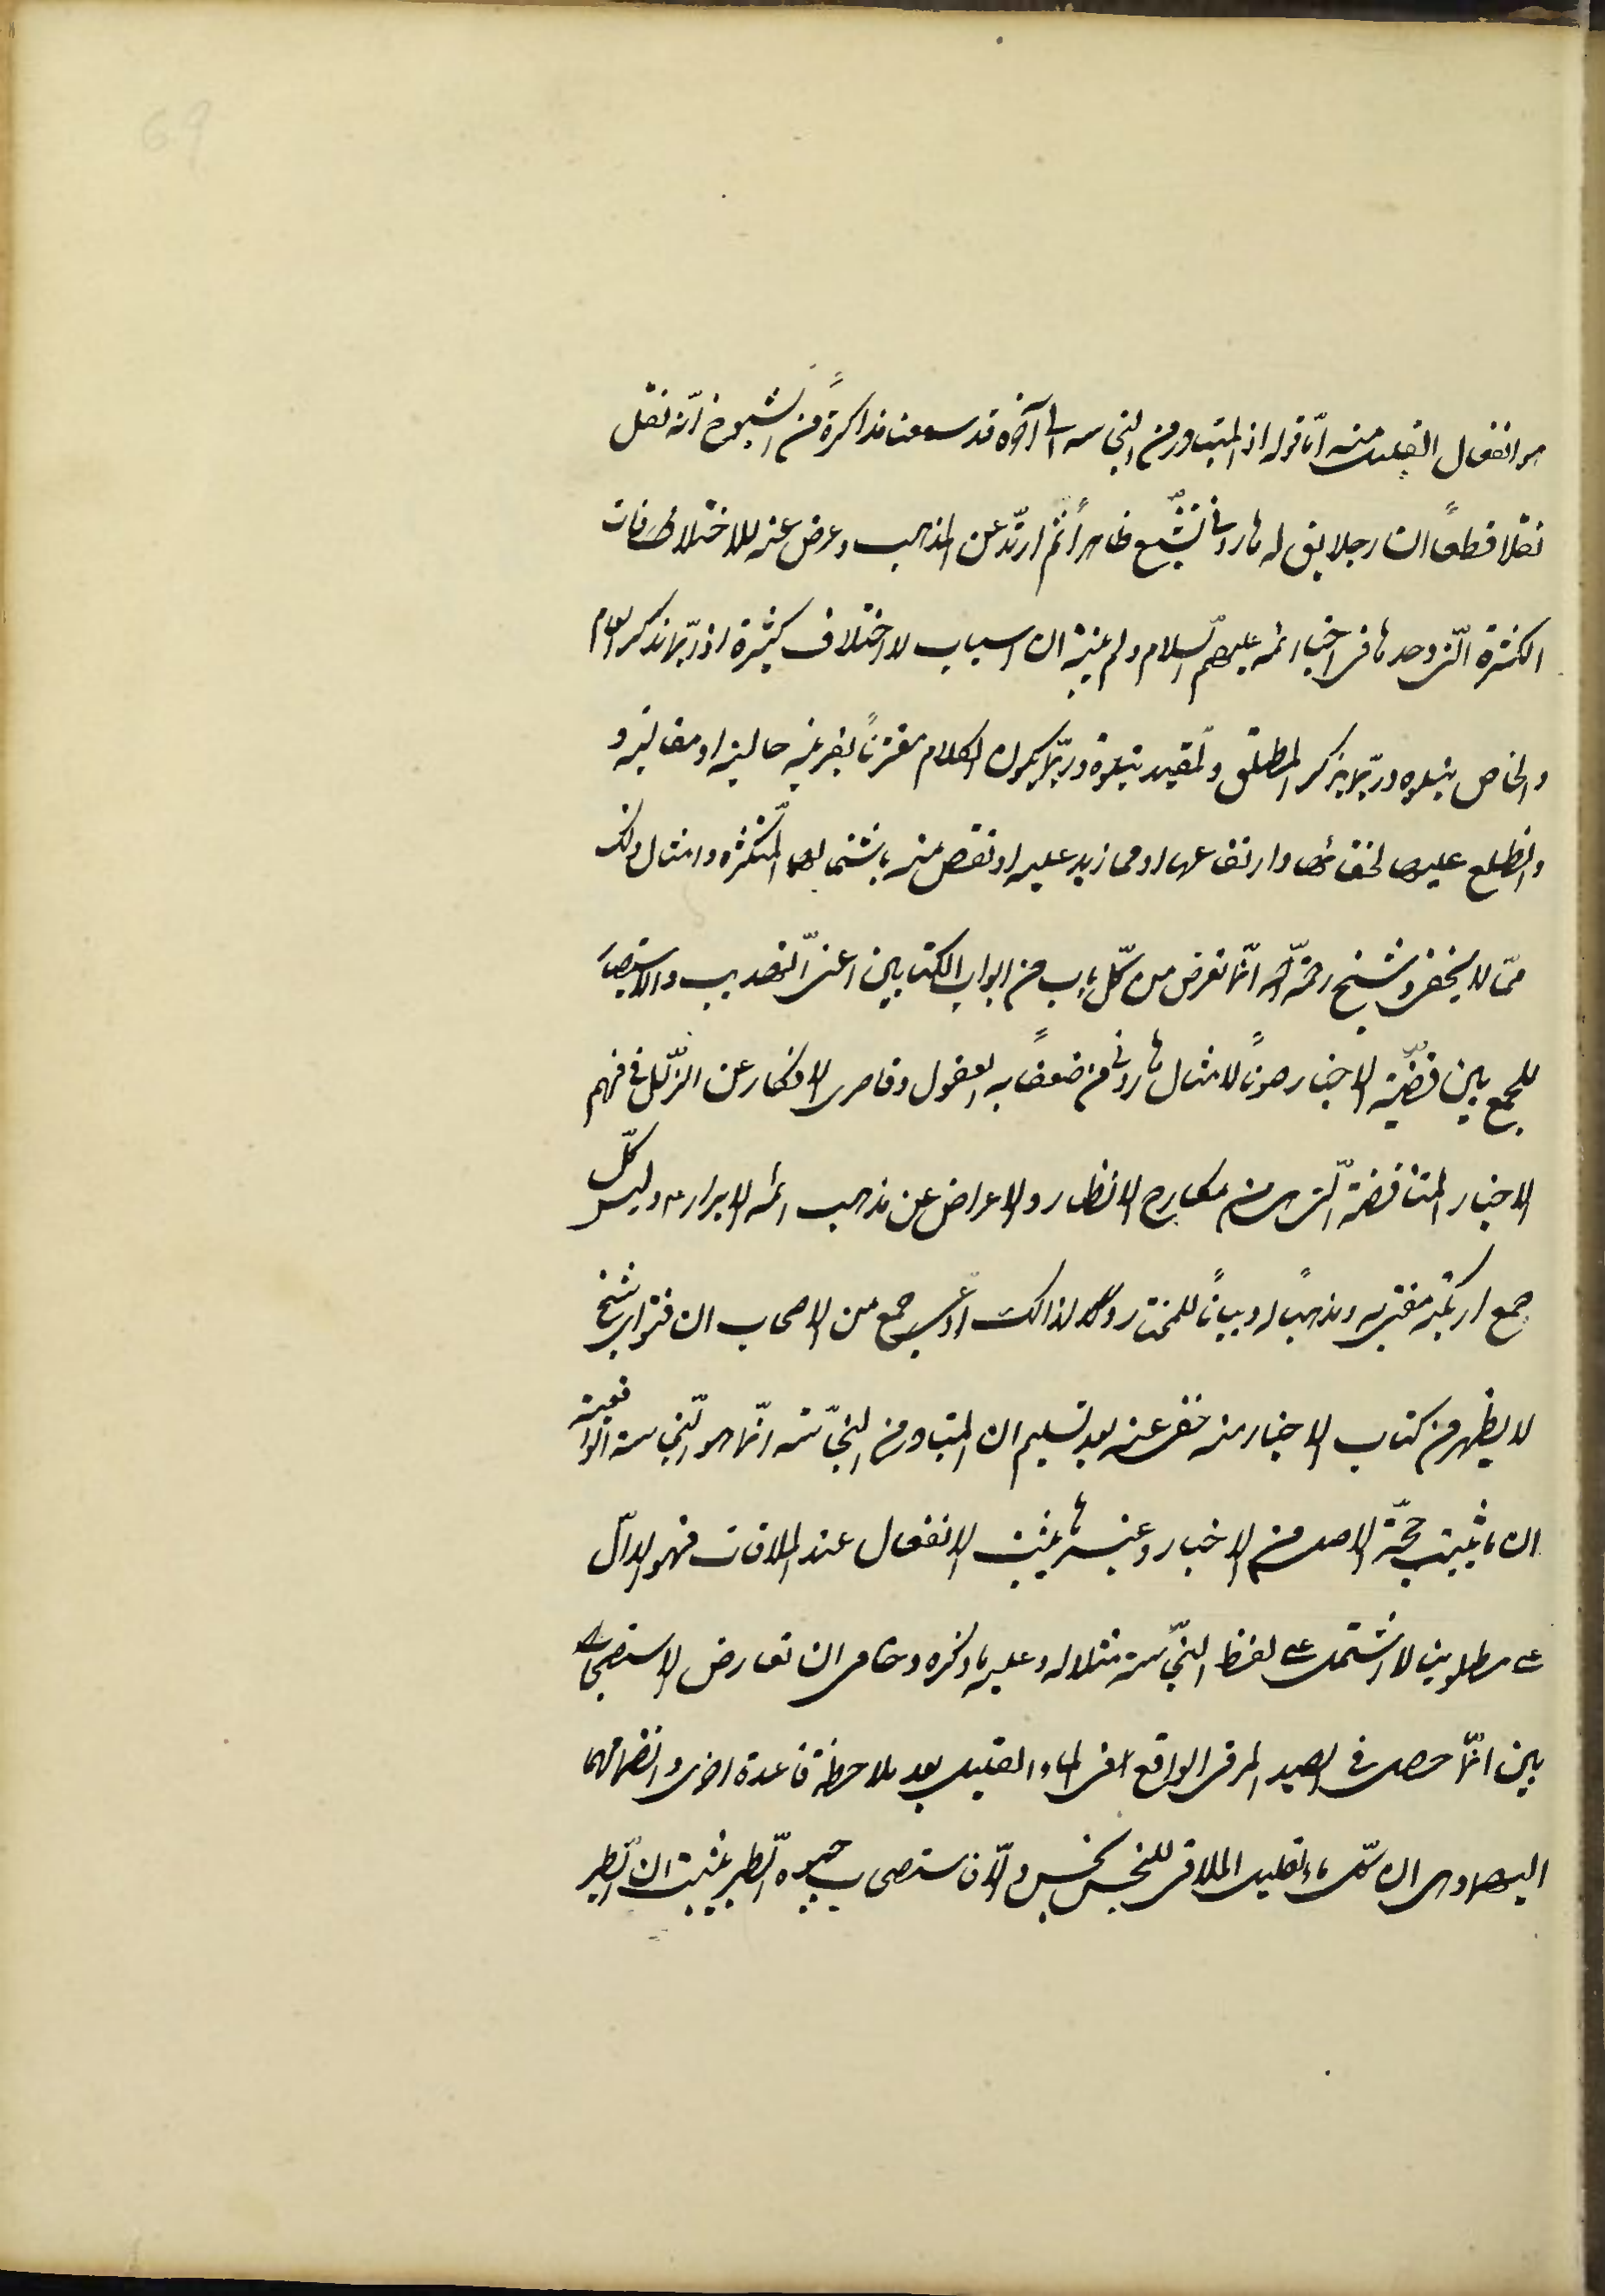 69
هو انفعال القليل منه امّا قوله اذ المتبادر من النجاسه الى آخره قد سمعت مذاكرةً من الشيوخ انّه نقل
نقلا قطعاً ان رجلا يق له هارونى تشيّع ظاهراً ثم ارتدّ عن المذهب وعرض عنه للاختلافات
الكثيرة الّتى وجدها فى اخبار ائمه عليهم السلام ولم يتنبه ان اسباب الاختلاف كثيرة اذ ربّما نذكر العام
والخاص يتلوه وربّما يذكر المطلق والمقيد يتلوه وربّما يكون الكلام مقترناً بقرينه حاليه او مقاليه و
لم نطلع عليها لخفائها وارتفاعها او مما زيد عليه او نقص منه باشتمالها المتكثره وامثال ذلك
ممّا لا يخفى والشيخ رحمه اللّه انّما تعرض من كلّ باب من ابواب الكتابين اعنى التهذيب والاستبصار
للجمع بين قضيّة الاخبار صوناً لامثال هارونى من ضعفاء العقول وقاصرى الافكار عن الزّلل فى فهم
الاخبار المتناقضة الّتى هى من مكاره الانظار والاعراض عن مذهب ائمه الابرار ع وليس كلّ
جمع ارتكبه مفتى به ومذهباً له وبياناً للمختار ولذالك ادّعى جمع من الاصحاب ان فتوى الشيخ
لا يظهر من كتاب الاخبار منه خفى عنه بعد تسليم ان المتبادر من النجاسه انّما هو النّجاسه الواقعية
ان ما يثبت حجّة الاصل من الاخبار وغيرها يثبت الانفعال عند الملاقات فهو الدالّ
على مطلوبنا لا اشتمل على لفظ النجّاسة مثلا له وعليه ما ذكره وخامس ان تعارض الاستصحاب
بين انّما حصل فى الصيد المرمى الواقع فى الماء القليل بعد ملاحظة قاعدة اخرى وانضمامها
اليها وهى ان كلّ ماء قليل الملاقى للنجس نجس والّا فاستصحاب حيوه الطير يثبت ان الطير